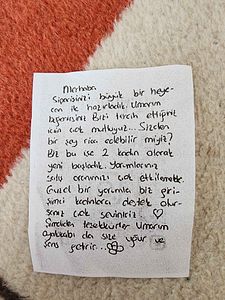 Merhaba
Siparişinizi büyük bir heye-
can ile hazırladık. Umarım
beğenirsiniz Bizi tercih ettiğiniz
için çok mutluyuz... Sizden
bir şey rica edebilir miyiz?
Biz bu işe 2 kadın olarak
yeni başladık. Yorumlarınız
satış oranımızı çok etkilemekte
Güzel bir yorumla biz giri-
şimci kadınlara destek olur-
sanız çok seviniriz ♡
Şimdiden teşekkürler Umarım
ayakkabı da size uğur ve
şans getirir...